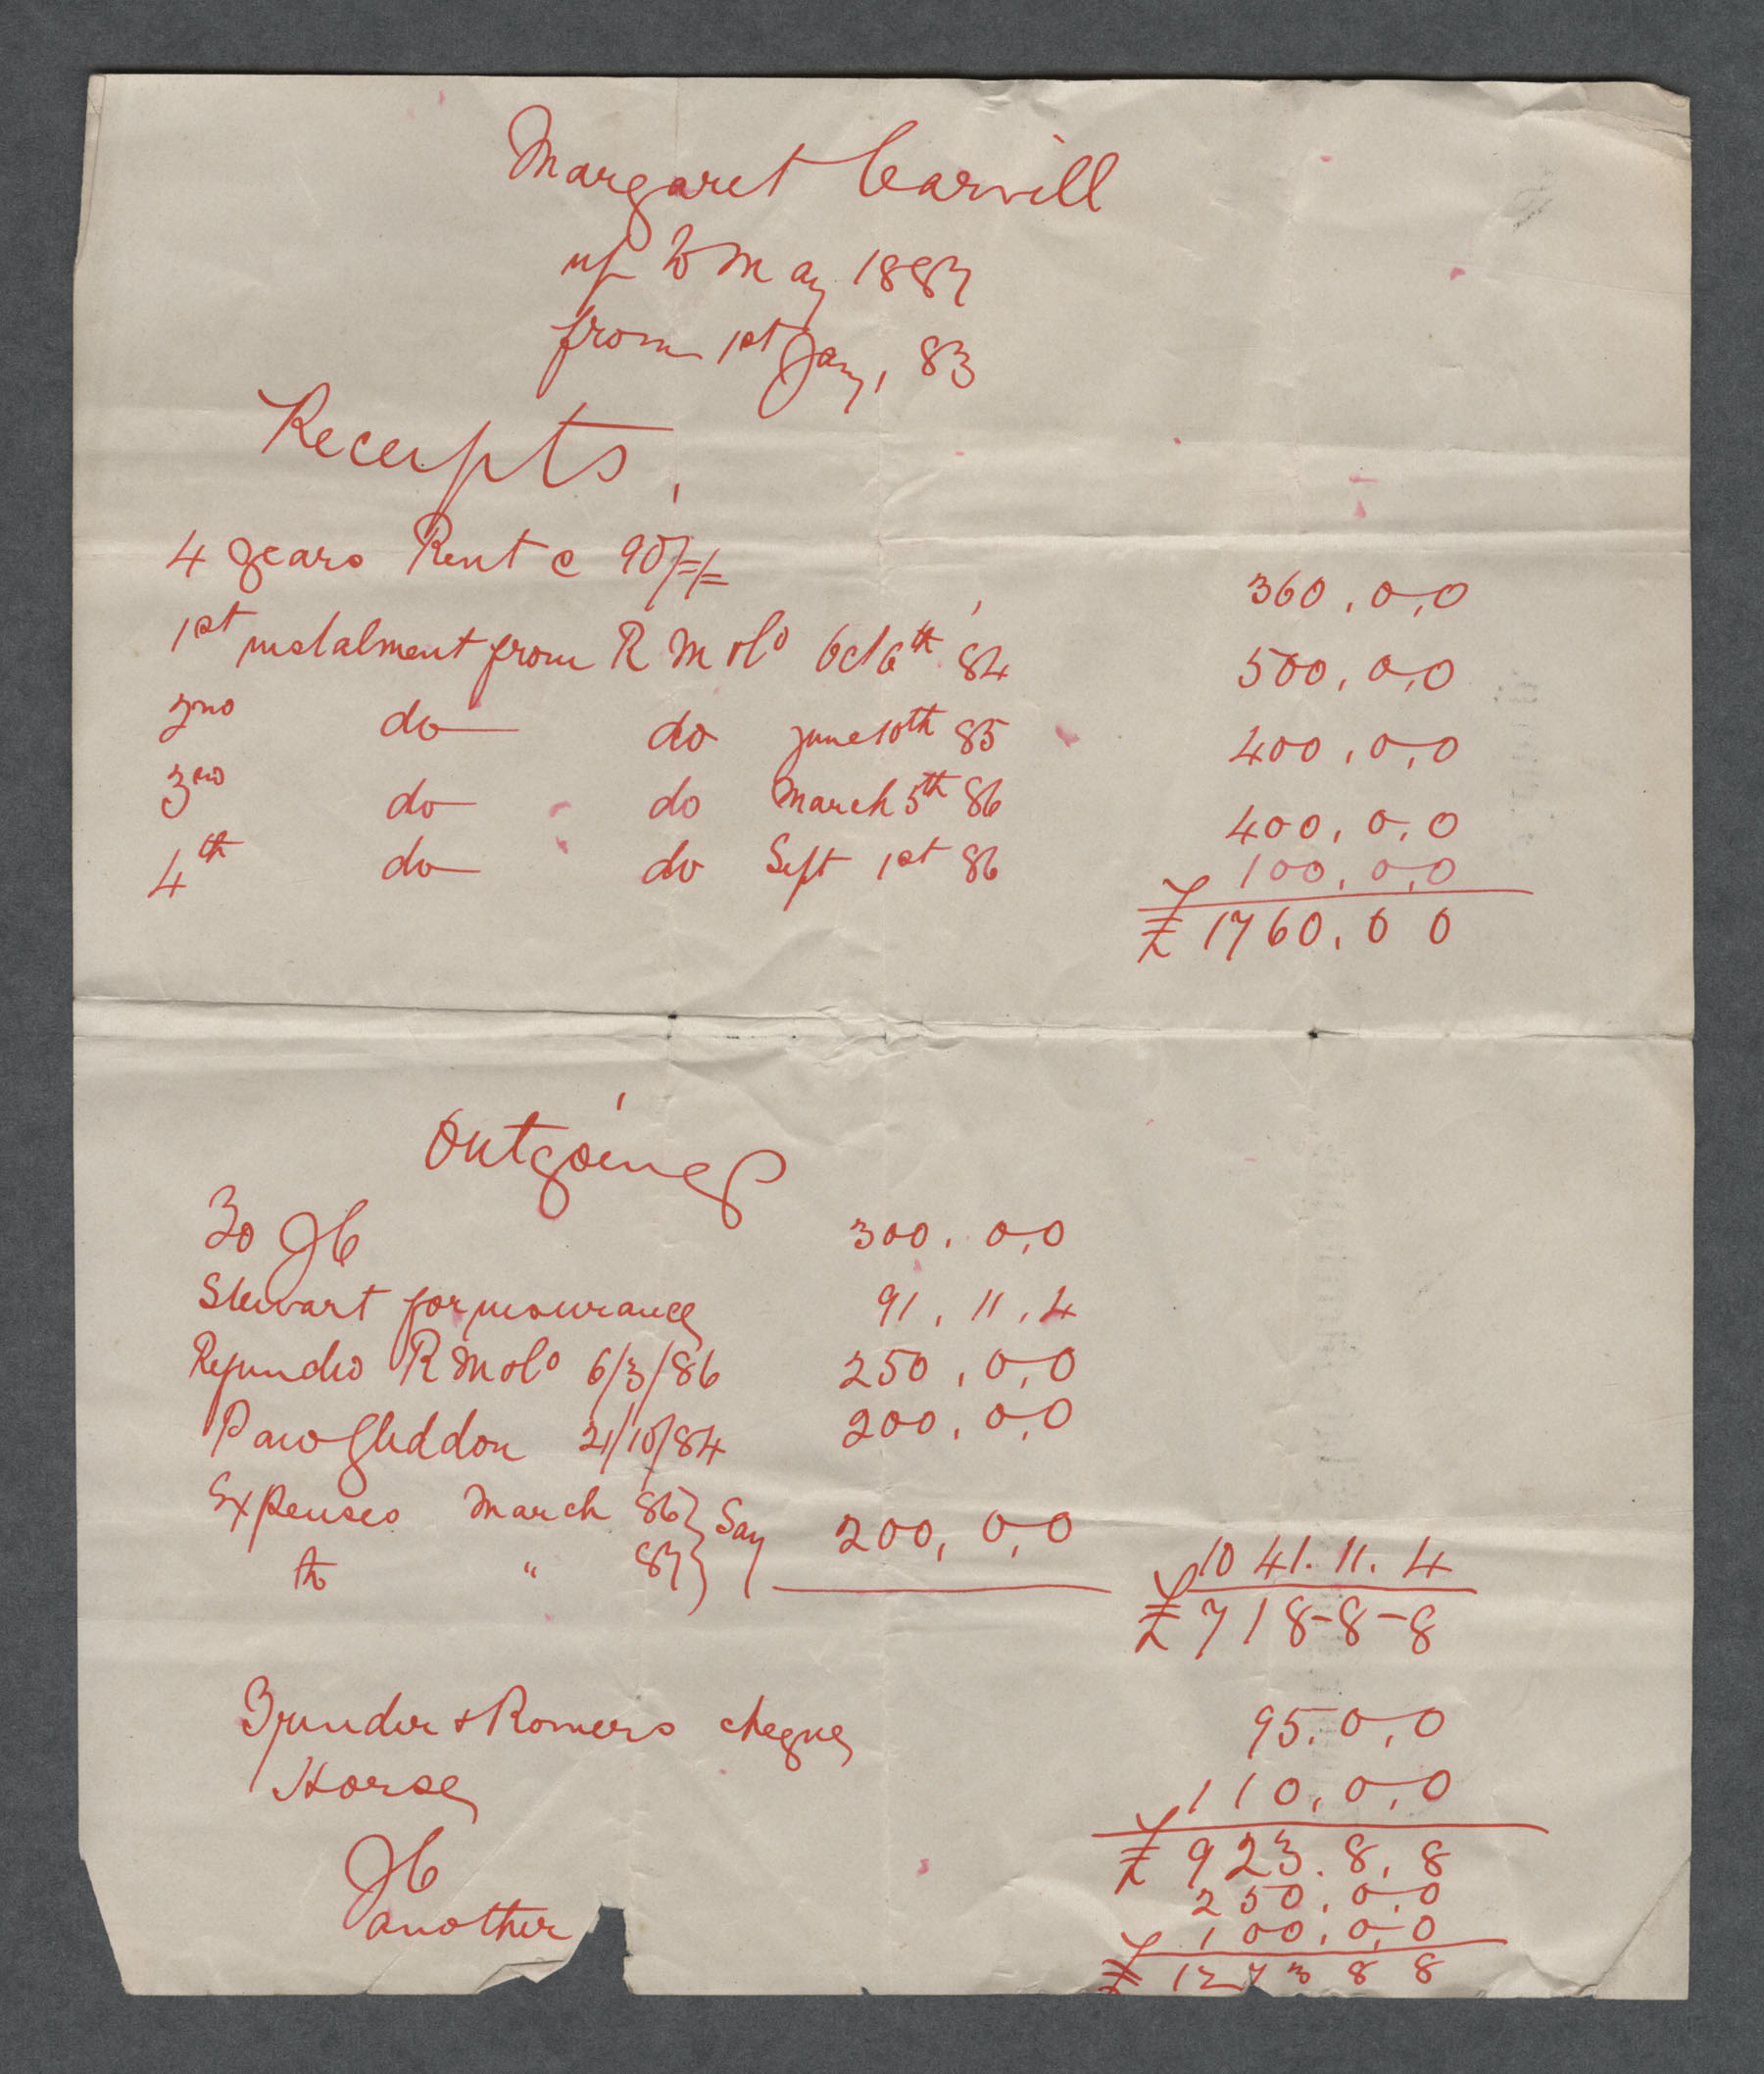 Margaret Carvill
up to May 1887
from 1st Jany, 83
Receipts,
4 years Rent @ 90/=/= 360.0.0
1st instalment from R M & Co Oct 6th 84 500.0.0
2nd do do June 10th 85 400.0.0
3rd do do March 5th 86 400.0.0
4th do do Sept 1st 86 100.0.0
£ 1760.0 0
Outgoings
To JC 300.0.0
Stewart for insurance 91.11.4
Refunded R M & Co 6/3/86 250.0.0
Paid Gleddon 21/10/84 200.0.0
Expenses March 86 } Say 200.0.0
to " 87 } 1041.11.4
£ 718-8-8
& Romers cheque 95.0.0
Horse 110.0.0
£ 923.8.8
JC 250.0.0
another 100.0.0
£ 1273 8 8